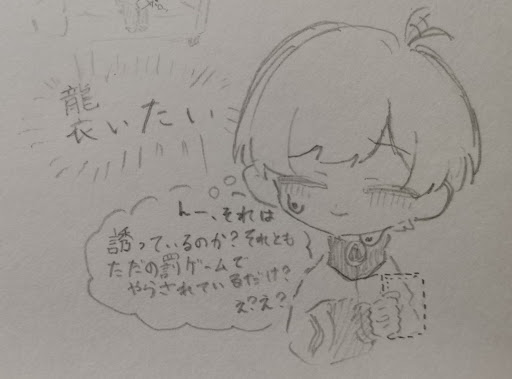 龍
衣いたい
んー、それは
誘っているのか？それとも
ただの罰ゲームで
やらされているだけ？
え？え？